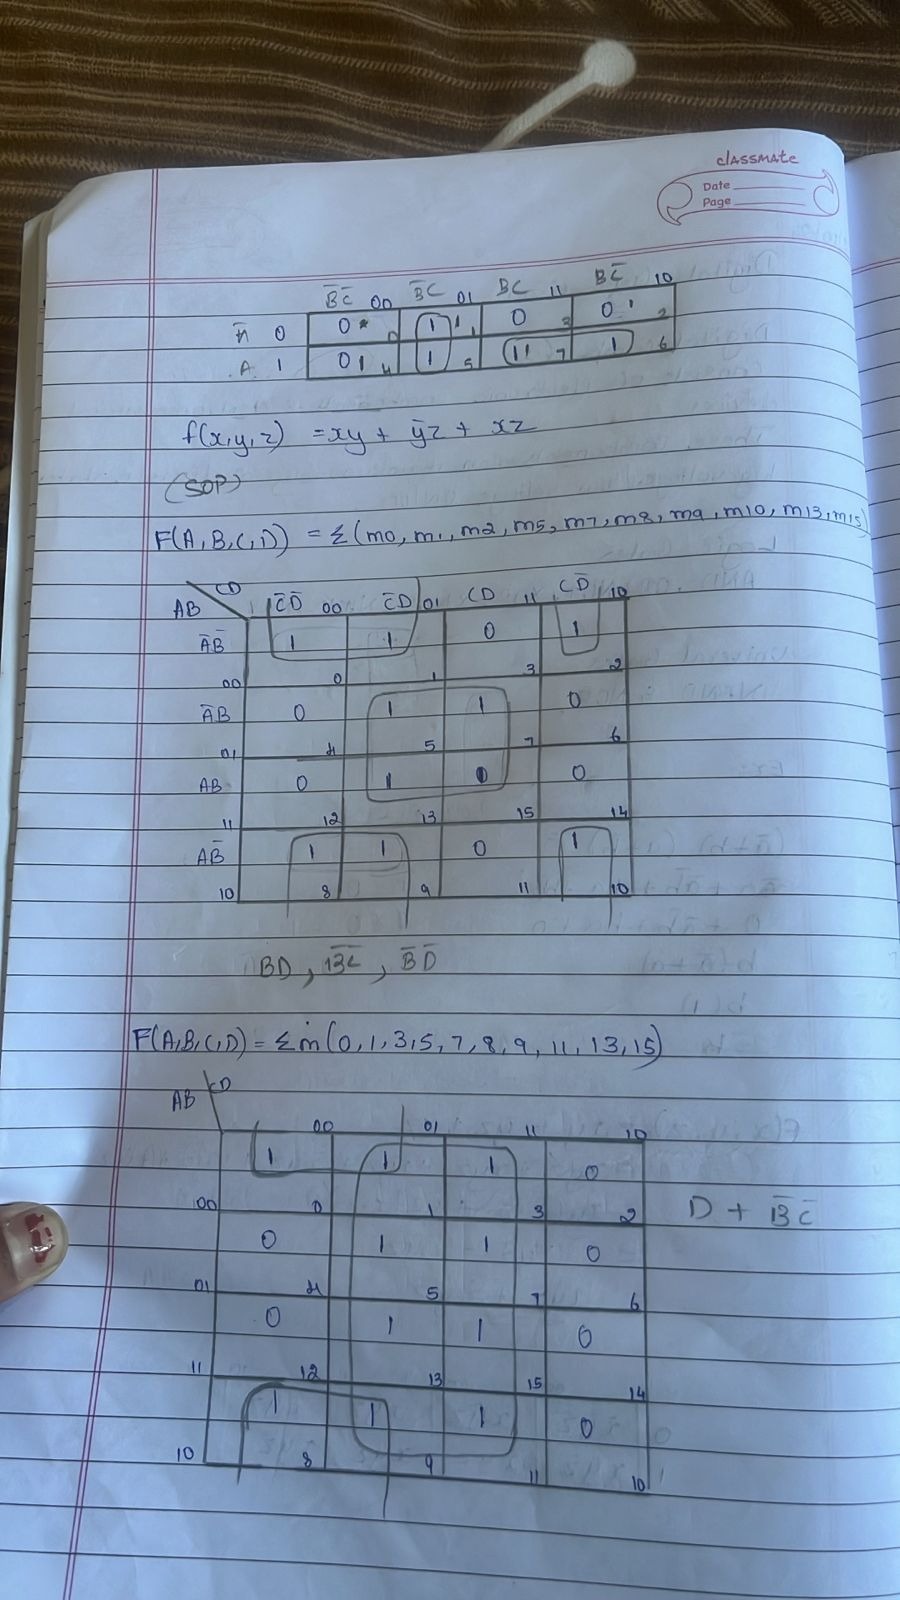 classmate
Date
Page
B̄C̄ 00 B̄C 01 BC 11 BC̄ 10
Ā 0 0 0 1 1 0 3 0 2
A 1 0 4 1 5 1 7 1 6
f(x,y,z) = xy + ȳz + xz
(SOP)
F(A,B,C,D) = Σ(m0, m1, m2, m5, m7, m8, m9, m10, m13, m15)
AB CD C̄D̄ 00 C̄D 01 CD 11 CD̄ 10
ĀB̄ 1 1 0 1
00 0 1 3 2
ĀB 0 1 1 0
01 4 5 7 6
AB 0 1 0
11 12 13 15 14
AB̄ 1 1 0 1
10 8 9 11 10
BD, B̄C̄, B̄D̄
F(A,B,C,D) = Σm(0,1,3,5,7,8,9,11,13,15)
AB CD
00 01 11 10
1 1 1 0
00 0 1 3 2 D + B̄C̄
0 1 1 0
01 4 5 7 6
0 1 1 0
11 12 13 15 14
1 1 1 0
10 8 9 11 10